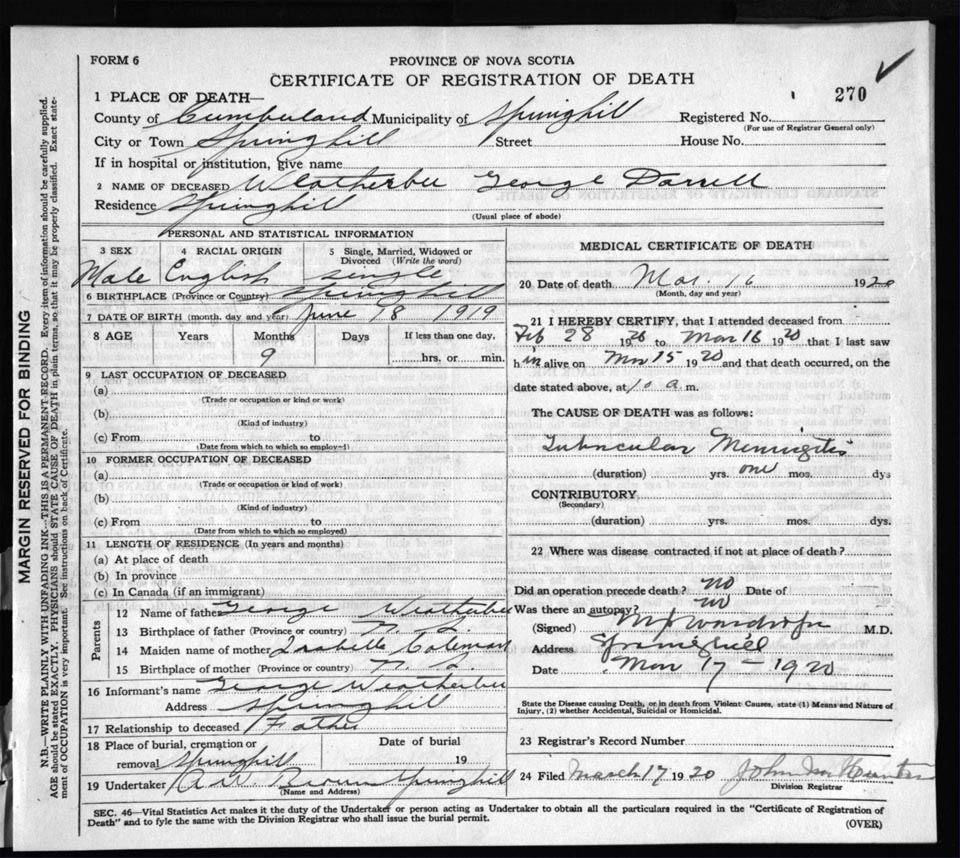 FORM 6
PROVINCE OF NOVA SCOTIA
CERTIFICATE OF REGISTRATION OF DEATH
270
1 PLACE OF DEATH—
County of Cumberland Municipality of Springhill Registered No.
(For use of Registrar General only)
City or Town Springhill Street House No.
If in hospital or institution, give name
2 NAME OF DECEASED Weatherbee George Darrell
Residence Springhill
(Usual place of abode)
PERSONAL AND STATISTICAL INFORMATION
3 SEX 4 RACIAL ORIGIN 5 Single, Married, Widowed or Divorced (Write the word)
Male English single
6 BIRTHPLACE (Province or Country) Springhill
7 DATE OF BIRTH (month, day and year) June 18 1919
8 AGE Years Months Days If less than one day,
9 hrs. or min.
9 LAST OCCUPATION OF DECEASED
(a)
(Trade or occupation or kind or work)
(b)
(Kind of industry)
(c) From to
(Date from which to which so employed)
10 FORMER OCCUPATION OF DECEASED
(a)
(Trade or occupation or kind of work)
(b)
(Kind of industry)
(c) From to
(Date from which to which so employed)
11 LENGTH OF RESIDENCE (In years and months)
(a) At place of death
(b) In province
(c) In Canada (if an immigrant)
Parents
12 Name of father George Weatherbee
13 Birthplace of father (Province or country) N. S.
14 Maiden name of mother Isabelle Coleman
15 Birthplace of mother (Province or country) N. S.
16 Informant's name George Weatherbee
Address Springhill
17 Relationship to deceased Father
18 Place of burial, cremation or Date of burial
removal Springhill 19
19 Undertaker A W. Brown Springhill
(Name and Address)
MEDICAL CERTIFICATE OF DEATH
20 Date of death Mar. 16 1920
(Month, day and year)
21 I HEREBY CERTIFY, that I attended deceased from
Feb 28 1920 to Mar 16 1920 that I last saw
h im alive on Mar 15 1920 and that death occurred, on the
date stated above, at 10 a. m.
The CAUSE OF DEATH was as follows:
Tubercular Meningitis
(duration) yrs. one mos. dys
CONTRIBUTORY
(Secondary)
(duration) yrs. mos. dys.
22 Where was disease contracted if not at place of death?
Did an operation precede death? no Date of
Was there an autopsy? no
(Signed) M.D.
Address Springhill
Date Mar 17 - 1920
State the Disease causing Death, or in death from Violent Causes, state (1) Means and Nature of
Injury, (2) whether Accidental, Suicidal or Homicidal.
23 Registrar's Record Number
24 Filed March 17 1920 John
Division Registrar
SEC. 46—Vital Statistics Act makes it the duty of the Undertaker or person acting as Undertaker to obtain all the particulars required in the "Certificate of Registration of
Death" and to fyle the same with the Division Registrar who shall issue the burial permit.
(OVER)
MARGIN RESERVED FOR BINDING
N.B.—WRITE PLAINLY WITH UNFADING INK—THIS IS A PERMANENT RECORD. Every item of information should be carefully supplied.
AGE should be stated EXACTLY. PHYSICIANS should STATE CAUSE OF DEATH in plain terms, so that it may be properly classified. Exact state-
ment of OCCUPATION is very important. See instructions on back of Certificate.